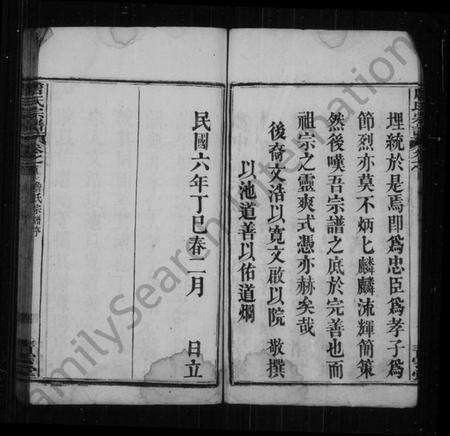 埋統於是焉即為忠臣為孝子為
節烈亦莫不炳匕麟麟流輝簡策
然後嘆吾宗譜之底於完善也而
祖宗之靈爽式憑亦赫矣哉
後裔文浩以寬文啟以院 敬撰
以池道善以佑道炯
民國六年丁巳春二月 日立
FamilySearch International